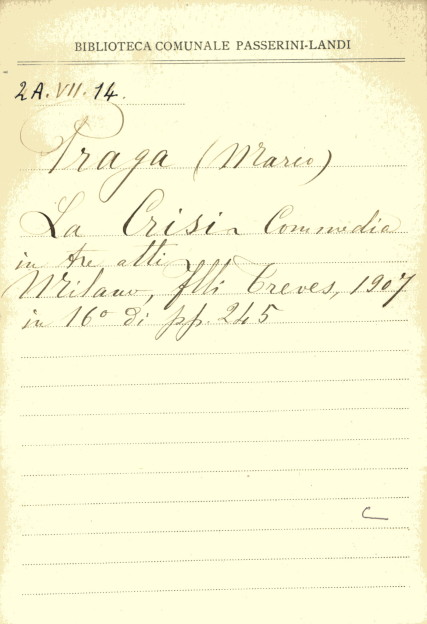 BIBLIOTECA COMUNALE PASSERINI-LANDI
2A.VII.14.
Praga (Marco)
La Crisi Commedia
in tre atti
Milano, Flli Treves, 1907
in 16° di pp. 245
C